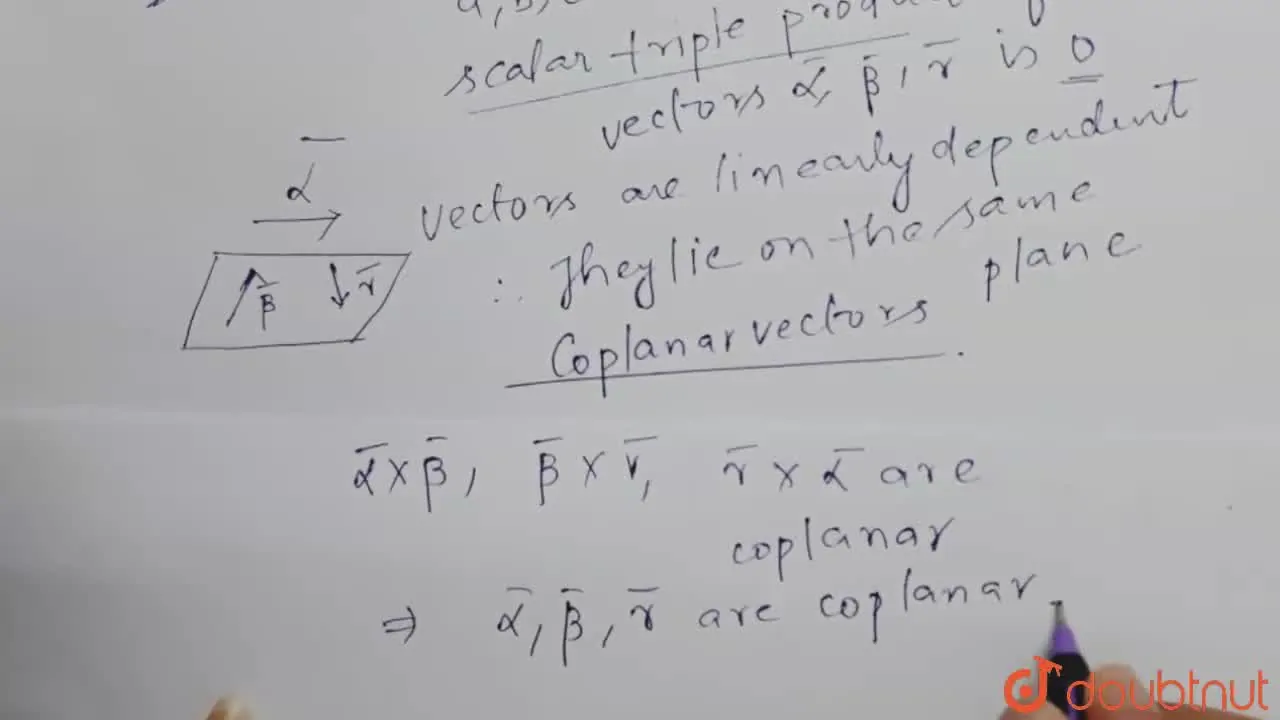 scalar triple product
vectors ᾱ, β̄, r̄ is 0
ᾱ
vectors are linearly dependent
∴ They lie on the same
plane
β̄ r̄
Coplanar vectors.
ᾱ × β̄, β̄ × r̄, r̄ × ᾱ are
coplanar
⇒ ᾱ, β̄, r̄ are coplanar.
doubtnut